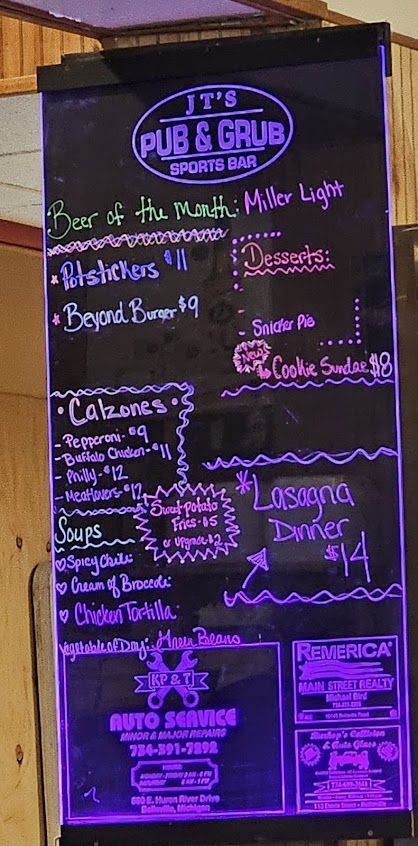 JT'S
PUB & GRUB
SPORTS BAR
Beer of the Month: Miller Light
* Potstickers $11
* Beyond Burger $9
Desserts:
- Snicker Pie
New!
Cookie Sundae $8
• Calzones •
- Pepperoni - $9
- Buffalo Chicken - $11
- Philly - $12
- Meatlovers - $12
Sweet Potato
Fries - $5
or upgrade $2
* Lasagna
Dinner
$14
Soups
♡ Spicy Chili
♡ Cream of Broccoli
♡ Chicken Tortilla
Vegetable of Day: Green Beans
KP & T
AUTO SERVICE
MINOR & MAJOR REPAIRS
734-391-7892
HOURS
MONDAY - FRIDAY 8 AM - 6 PM
SATURDAY
E. Huron River Drive
Belleville, Michigan
REMERICA
MAIN STREET REALTY
Michael Bird
Bishop's Collision
& Auto Glass
Belleville